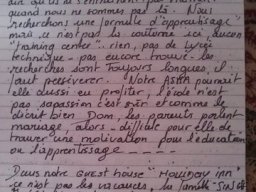 quand nous ne sommes pas là. Nous
recherchons une formule d'apprentissage
mais ce n'est pas la coutume ici, aucun
"training center".. rien, pas de lycée
technique - pas encore trouvé. les
recherches sont toujours longues, il
faut persévérer. Notre pourrait
elle aussi en profiter, l'école n'est
pas sa passion c'est sûr et comme le
décrit bien Dom, les parents parlent
mariage, alors - difficile pour elle de
trouver une motivation pour l'éducation
ou l'apprentissage - - - -
Dans notre GUEST HOUSE "HOLIDAY INN"
ce n'est pas les vacances, la famille